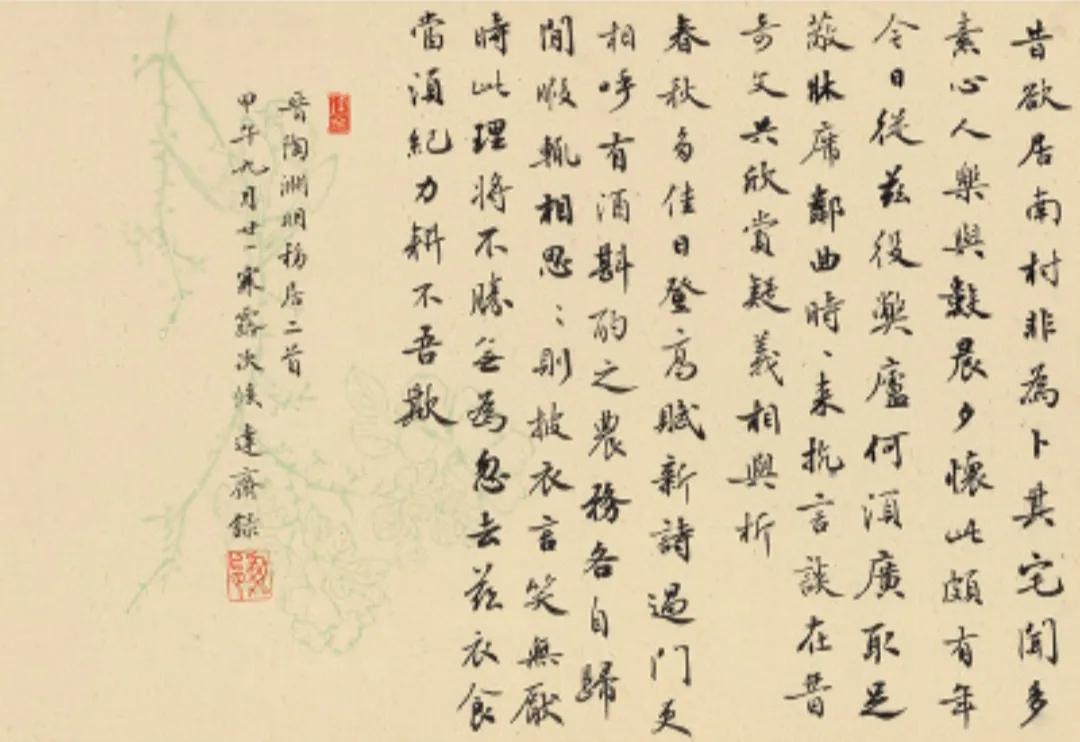 昔欲居南村非為卜其宅聞多
素心人樂與數晨夕懷此頗有年
今日從茲役獘廬何須廣取足
蔽牀席鄰曲時〻来抗言談在昔
奇文共欣賞疑義相與析
春秋多佳日登高賦新詩過門更
相呼有酒斟酌之農務各自歸
閒暇輒相思〻則披衣言笑無厭
時此理將不勝無為忽去茲衣食
當須紀力耕不吾欺
晉陶淵明移居二首
甲午九月廿一寒露次候達齋錄